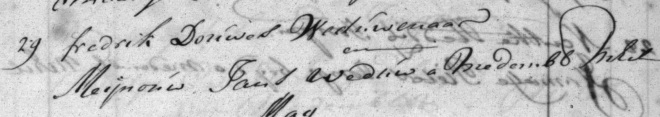 29 fredrik Douwes Weduwenaar
en
Meijnouw Jans Weduw a Medemb
May